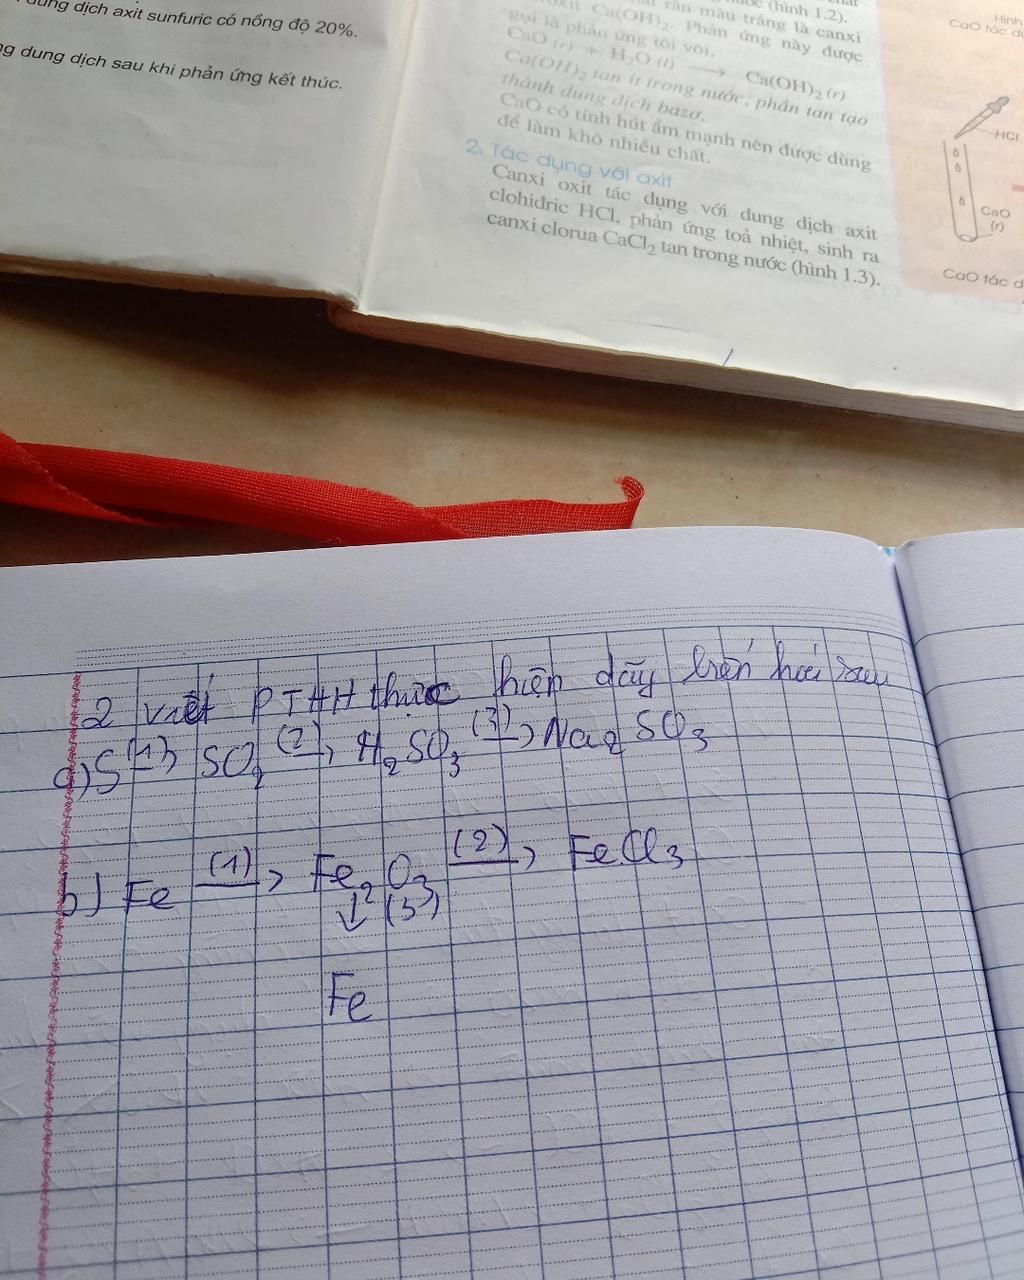 dung dịch axit sunfuric có nồng độ 20%.
dung dịch sau khi phản ứng kết thúc.
(hình 1.2).
rắn màu trắng là canxi
Ca(OH)₂. Phản ứng này được
gọi là phản ứng tôi vôi.
CaO (r) + H₂O (l) ⟶ Ca(OH)₂ (r)
Ca(OH)₂ tan ít trong nước, phần tan tạo
thành dung dịch bazơ.
CaO có tính hút ẩm mạnh nên được dùng
để làm khô nhiều chất.
2. Tác dụng với axit
Canxi oxit tác dụng với dung dịch axit
clohiđric HCl, phản ứng toả nhiệt, sinh ra
canxi clorua CaCl₂ tan trong nước (hình 1.3).
Hình
CaO tác
HCl
CaO
(r)
CaO tác d
2 viết PTHH thực hiện dãy biến hoá sau
a) S (1)→ SO₂ (2)→ H₂SO₃ (3)→ Na₂SO₃
b) Fe (1)→ Fe₂O₃ (2)→ FeCl₃
↓ (3)
Fe